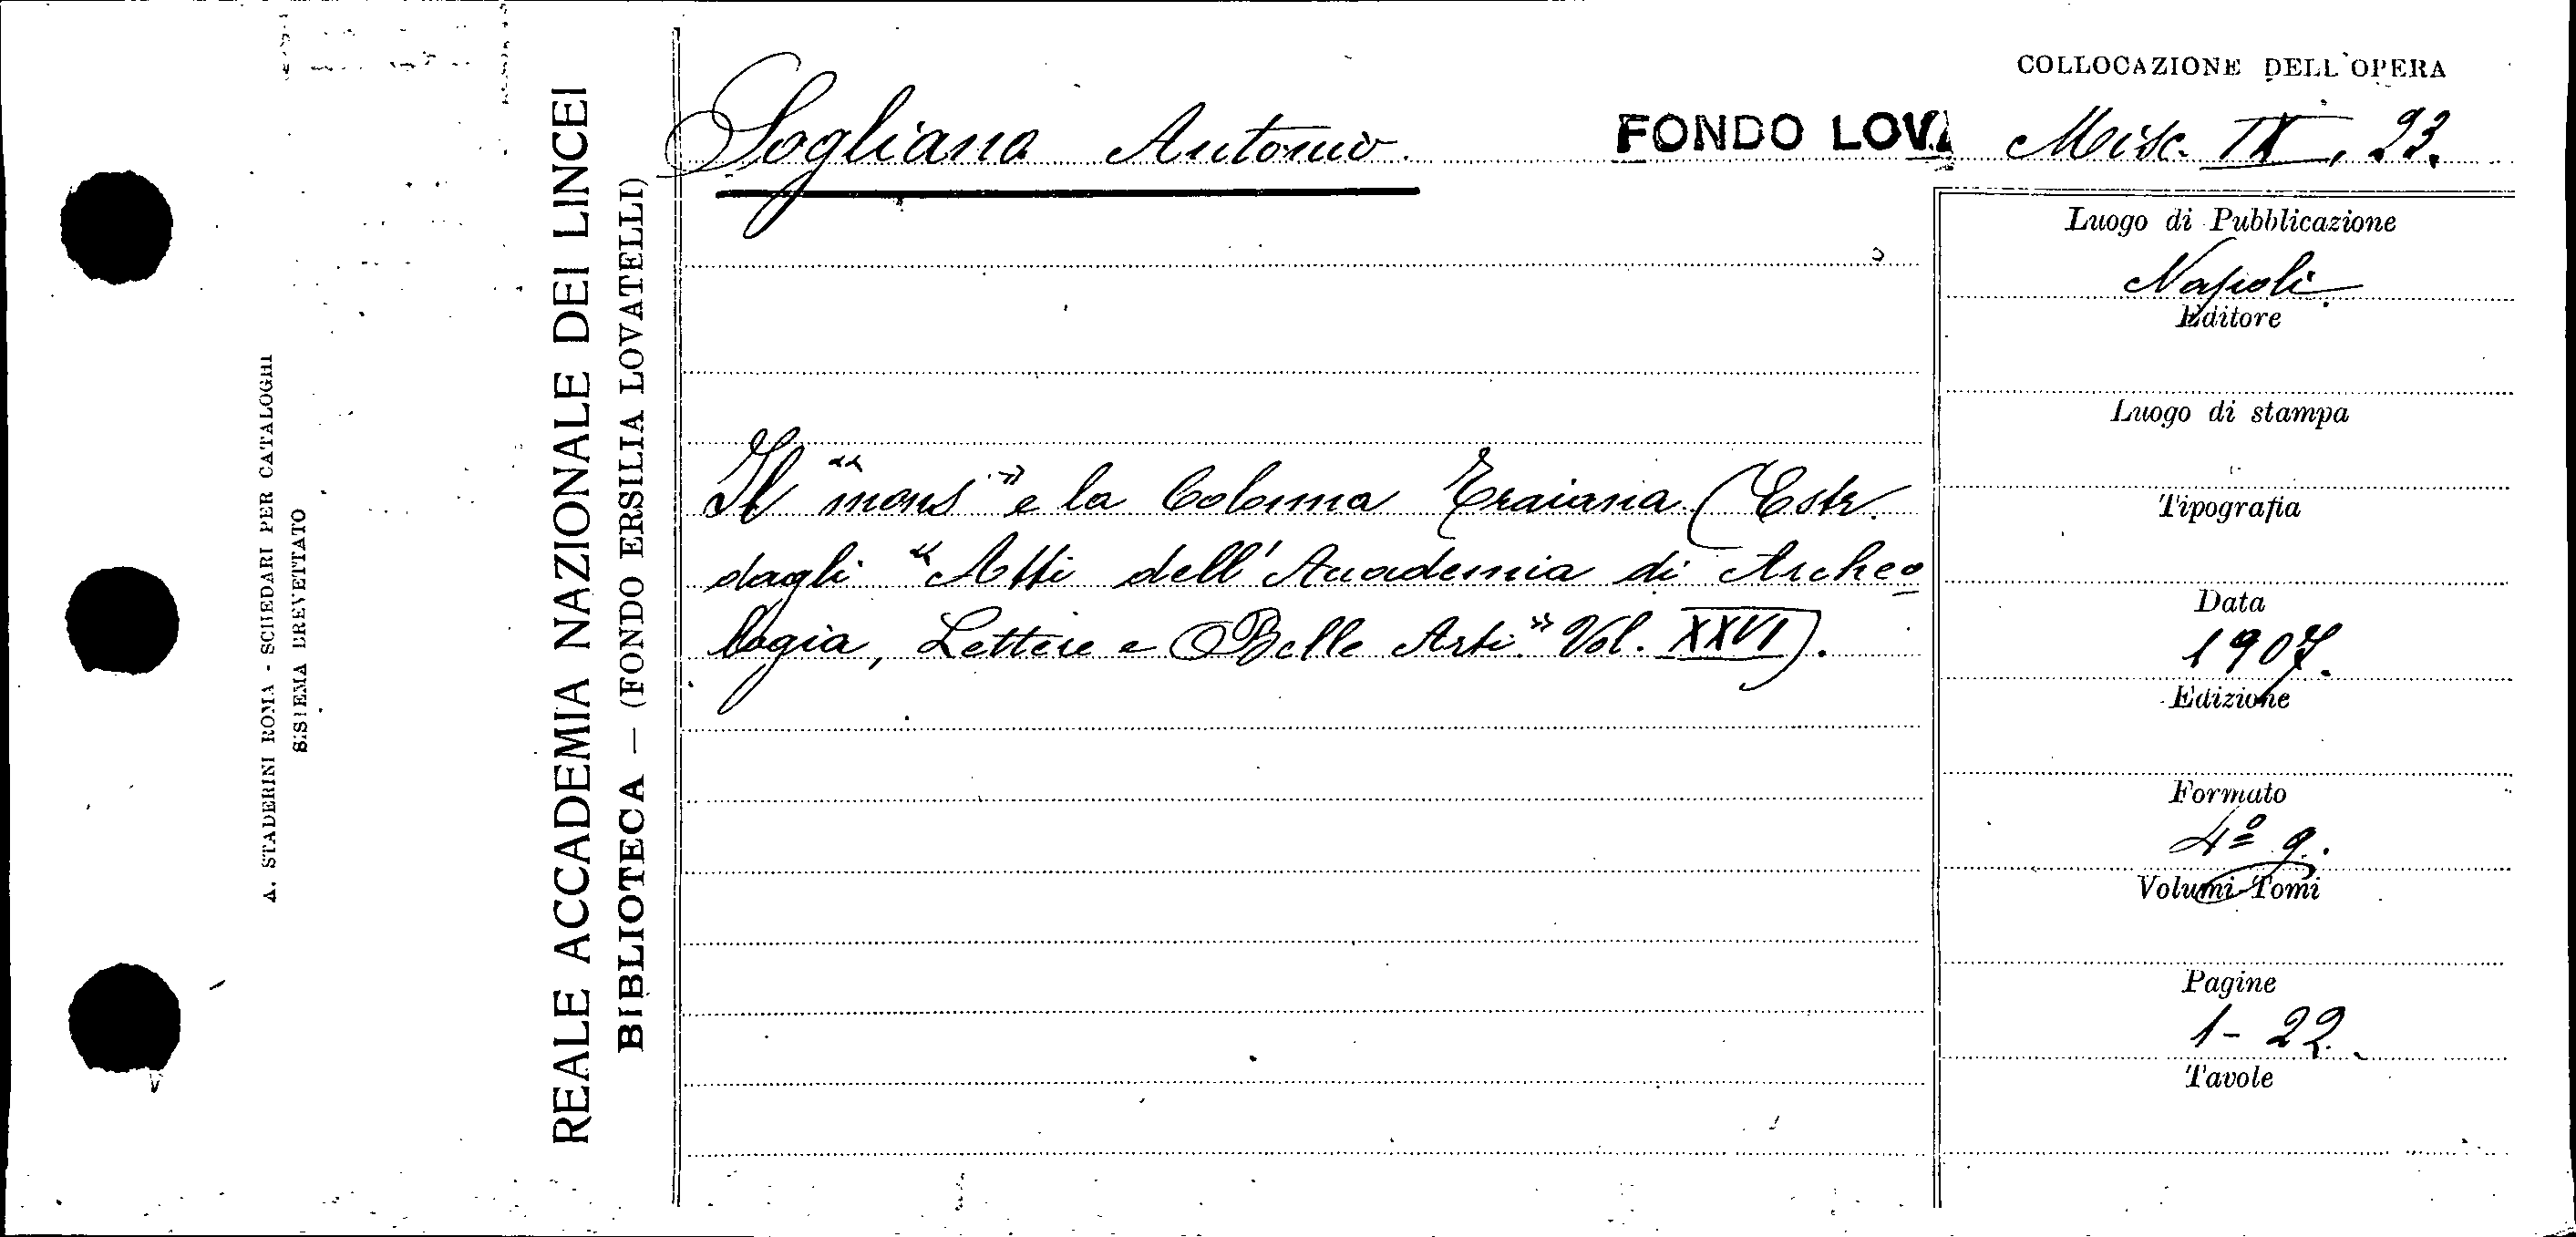 A. STADERINI ROMA - SCHEDARI PER CATALOGHI
SISTEMA BREVETTATO
REALE ACCADEMIA NAZIONALE DEI LINCEI
BIBLIOTECA — (FONDO ERSILIA LOVATELLI)
Sogliano Antonio.
FONDO LOVA
COLLOCAZIONE DELL'OPERA
Misc. IX, 23.
Il "mons" e la Colonna Traiana (Estr.
dagli "Atti dell'Accademia di Archeo
logia, Lettere e Belle Arti" Vol. XXVI).
Luogo di Pubblicazione
Napoli.
Editore
Luogo di stampa
Tipografia
Data
1907.
Edizione
Formato
4º g.
Volumi-Tomi
Pagine
1-22.
Tavole